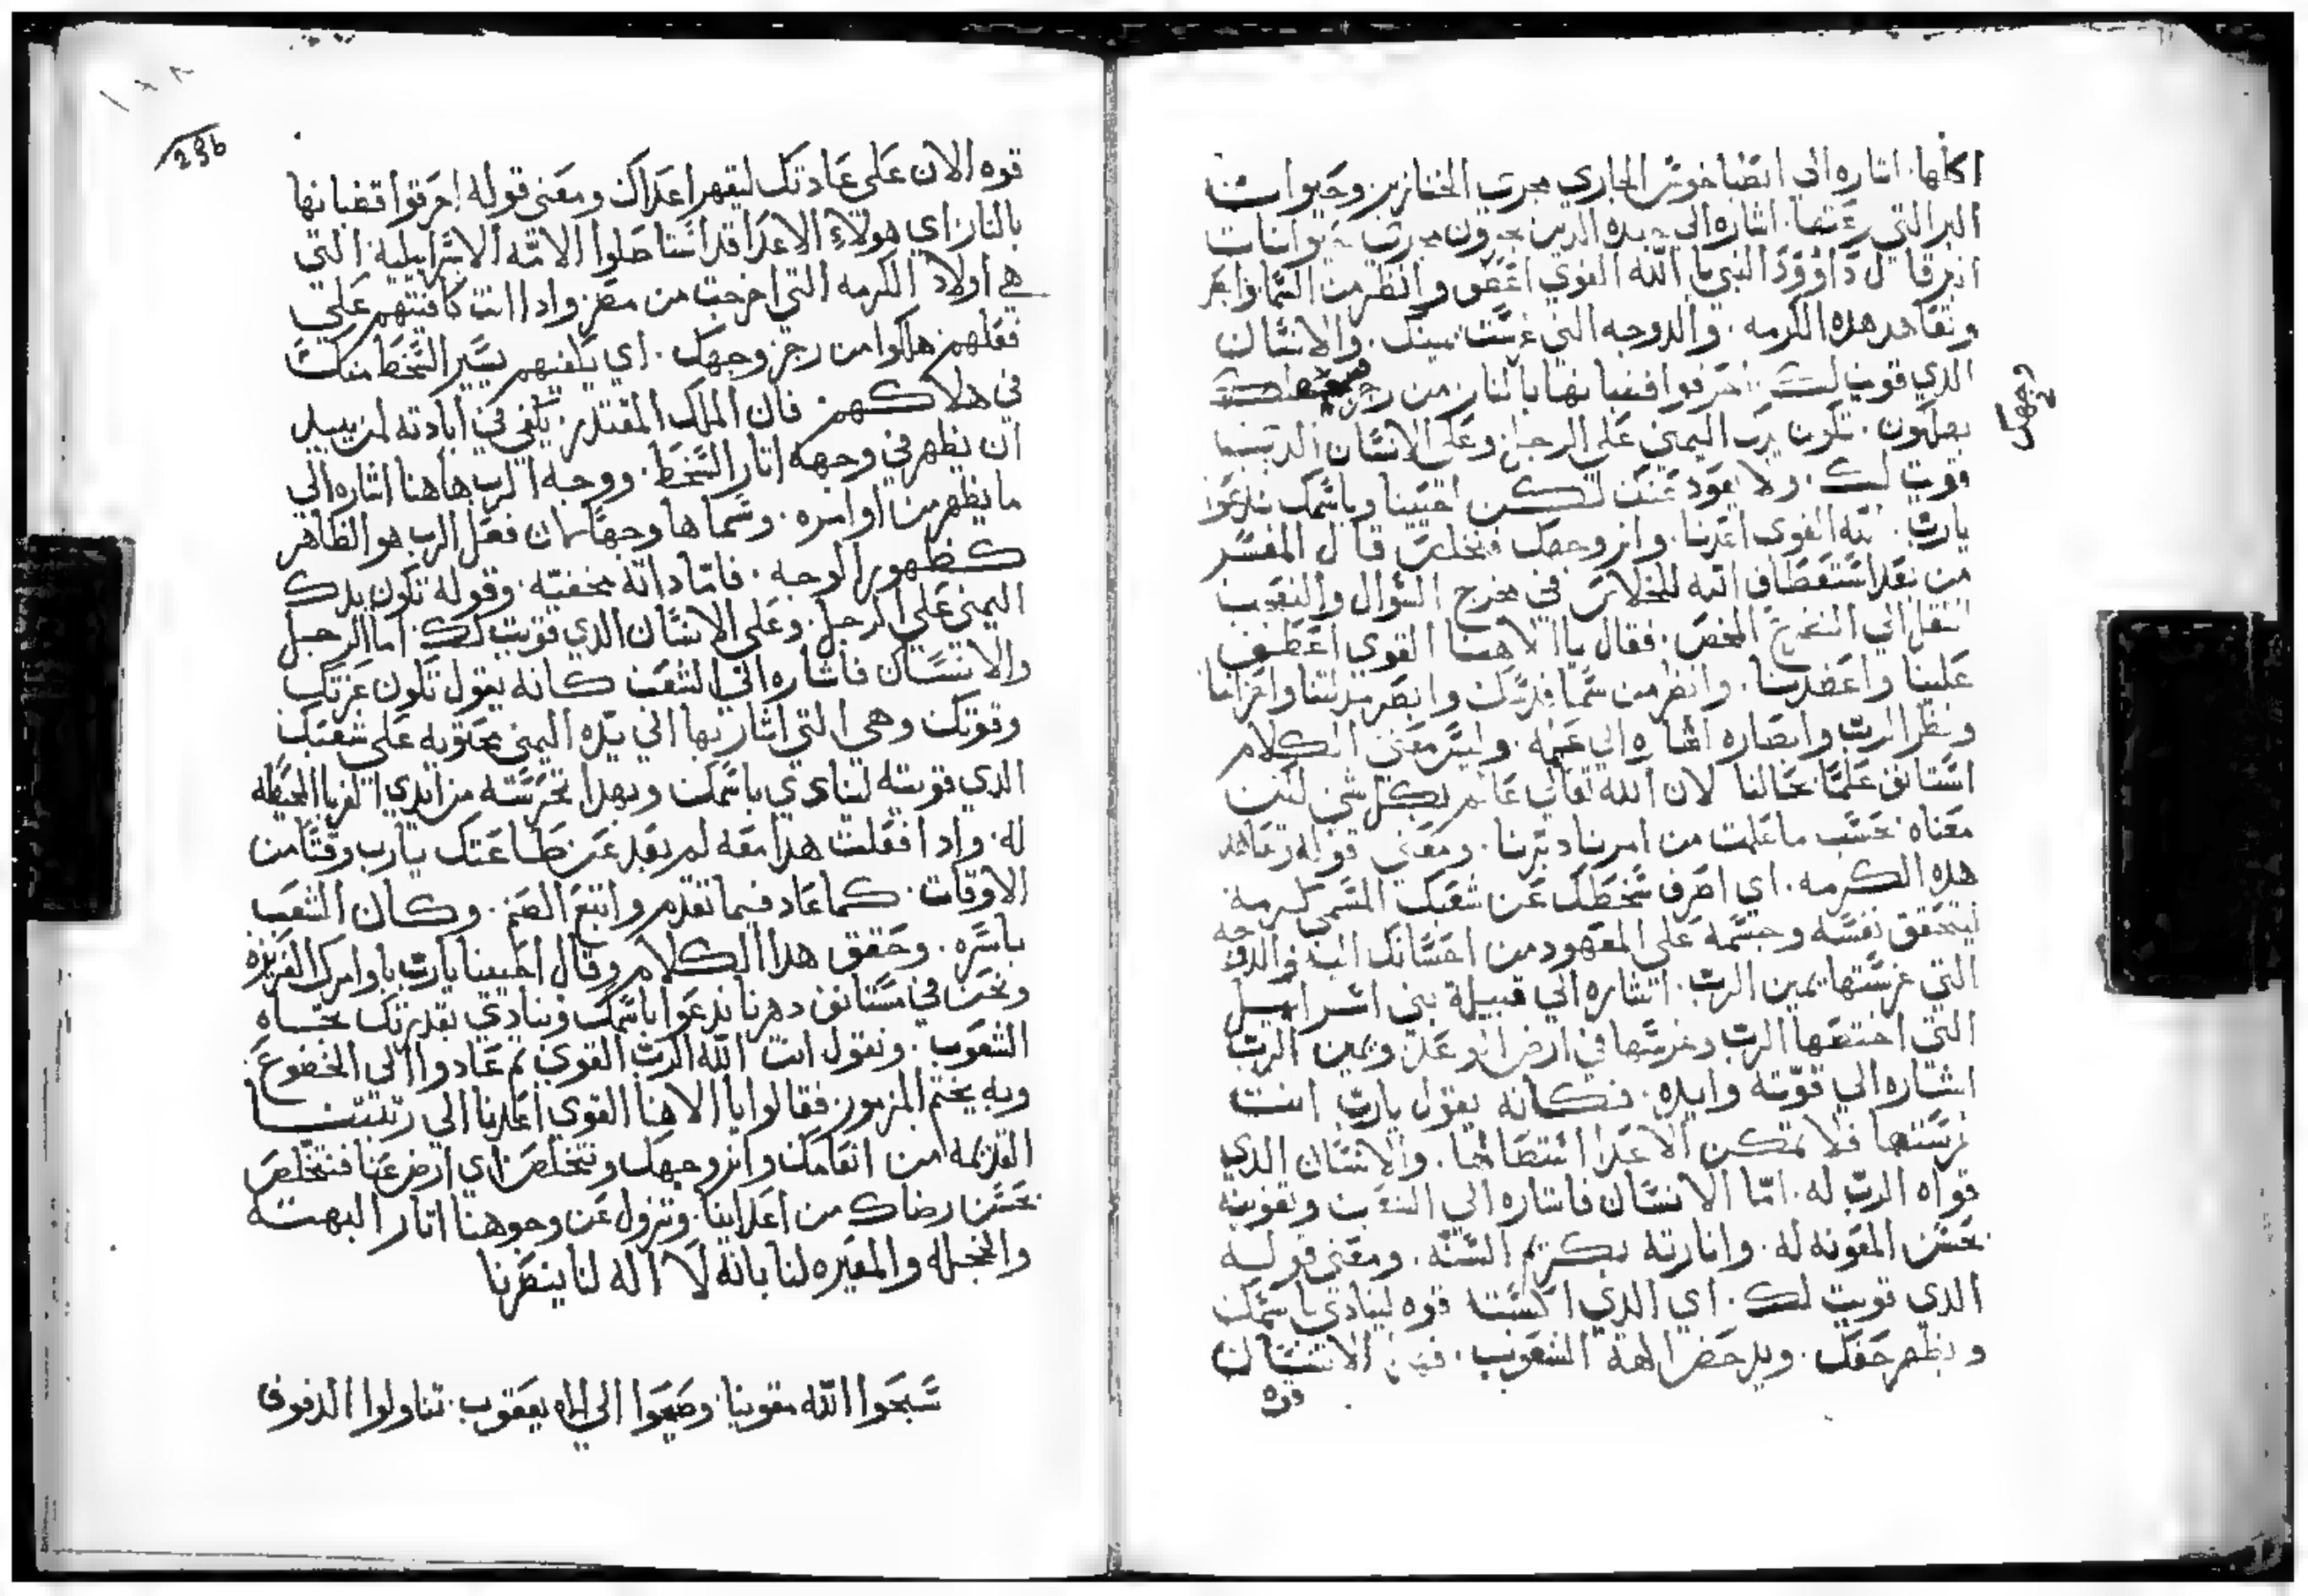 اكلها. اشاره الى انطياخوش الجاري مجرى الخنازير وحيوانات
البر التي رعتها. اشاره الى جنده الدين يجرون مجرى حيوانات
البر قال داوود النبي يا الله القوي اعطف وانظر من السما وابصر
وتعاهد هده الكرمه. والدوحه التي غرست يمينك. والانسان
الدي قويت لك. احرقوا قضبانها بالنار من رجز
وجهك
يهلكون. تكون يدك اليمنى على الرجل وعلى الانسان الدي
قويت لك. ولا نعود عنك لكن احيينا وباسمك ندعوا
يارب الله القوي اعدنا. وانر وجهك فنخلص قال المفسر
من بعد استعطاف الله للخلاص في مخرج السوال والتعجب
انتقل الى التضرع المحض. فقال يا الاهنا القوي اعطف
علينا واعضدنا. وانظر من سما قدسك وابصر مدلتنا واحزاننا
ونظر الرب وابصاره اشاره الى علمه. وليس معنى الكلام
استانف علما بحالنا لان الله تعالى عالم بكل شي لكن
معناه بحسب ما علمت من امرنا دبرنا. ومعنى قوله وتعاهد
هده الكرمه. اي اصرف سخطك عن شعبك المسمى كرمه
ليتحقق نفسه وجسمه على المعهود من احسانك اليه والدوحه
التي غرستها يمين الرب. اشاره الى قبيلة بني اسراييل
التي اختصها الرب وغرسها في ارض الوعد ويمين الرب
اشاره الى قوته وايده. فكانه يقول يارب انت
غرستها فلا تمكن الاعدا استيصالها. والانسان الدي
قواه الرب له. اما الانسان فاشاره الى الشعب وتقويته
بحسن المعونه له. وانارته بكريم السنه. ومعنى قوله
الدي قويت لك. اي الدي اكسبت قوه لينادي باسمك
ويظهر حقك. ويدحض الهة الشعوب. الانسان
قوه
236
قوه الان على عادتك ليقهر اعداك ومعنى قوله احرقوا قضبانها
بالنار اي هولاء الاعدا قد استاصلوا الامه الاسراييلية التي
هي اولاد الكرمه التي اخرجت من مصر واداانت كافيتهم على
فعلهم هلكوا من رجز وجهك. اي يكفيهم يسير السخط منك
في هلاكهم. فان الملك المقتدر. يكفي في ابادته لمن يبيد
ان يظهر في وجهه اثار السخط. ووجه الرب هاهنا اشاره الى
ما يظهر من اوامره. وسماها وجها لان فعل الرب هو الظاهر
كظهور الوجه. فاما داته مخفيه. وقوله تكون يدك
اليمنى على الرجل. وعلى الانسان الدي قويت لك. اما الرجل
والانسان فاشاره الى الشعب كانه يقول تكون عزتك
وقوتك وهي التي اشار بها الى يده اليمنى محتويه على شعبك
الدي قويته لينادي باسمك وبهدا تحرسته من ايدي الغربا المحيطه
له. وادا فعلت هدا معه لم يعد عن طاعتك يارب وقتا من
الاوقات. كما عاد فيما تقدم واتبع الصنم. وكان الشعب
باسره. وحقق هدا الكلام وقال احيينا يارب باوامرك العزيزه
ونحن في مستانف دهرنا ندعوا باسمك وننادي بقدرتك تجاه
الشعوب. ونقول انت الله الرب القوي ثم عادوا الى الخضوع
وبه يختم المزمور. فقالوا يا الاهنا القوي اعدنا الى رتبتنا
القديمه من انعامك وانر وجهك ونتخلص اي ارض عنا فنتخلص
بحسن رضاك من اعداينا. وتزول عن وجوهنا اثار البهته
والخجله والمعيره لنا بانه لا اله لنا ينصرنا
سبحوا الله مقوينا. وصيحوا الى اله يعقوب. تناولوا الدفوف